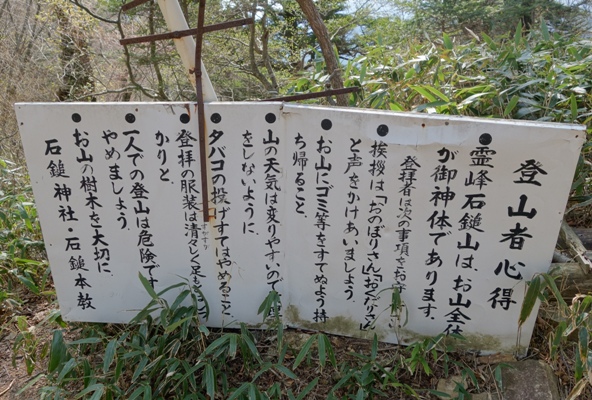 登山者心得
●霊峰石鎚山は、お山全体
が御神体であります。
登拝者は次の事項をお守
●挨拶は「おのぼりさん」「おくだりさん」
と声をかけあいましょう。
●お山にゴミ等をすてぬよう持
ち帰ること。
●山の天気は変りやすいので
をしないように。
●タバコの投げすてはやめること
●登拝の服装は清々しく足も
かりと。
●一人での登山は危険です
やめましょう。
●お山の樹木を大切に。
石鎚神社・石鎚本教